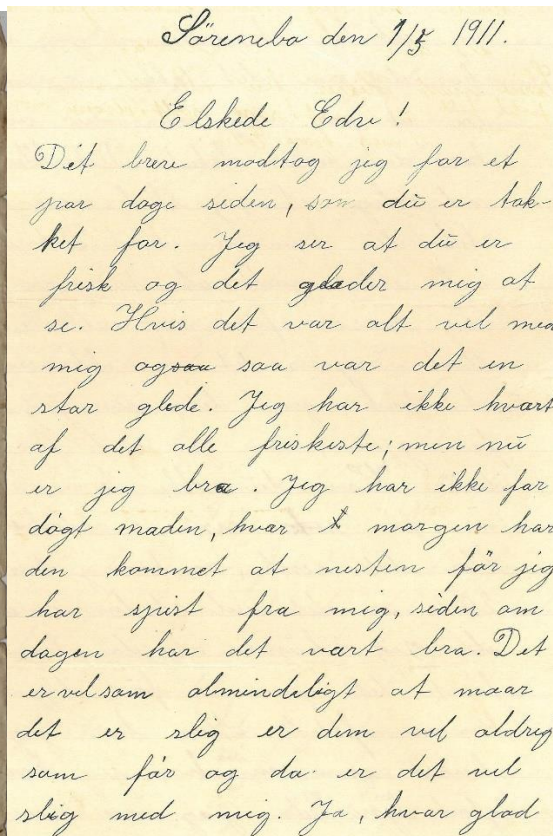 Söreneba den 1/5 1911.
Elskede Edu!
Dit breve modtog jeg for et
par dage siden, som du er tak-
ket for. Jeg ser at du er
frisk og det glader mig at
se. Hvis det var alt vel med
mig ogsaa saa var det en
stor glede. Jeg har ikke hvært
af det alle friskeste; men nu
er jeg bra. Jeg har ikke for
dögt maden, hvar morgen har
den kommet at nesten för jeg
har spist fra mig, siden om
dagen har det vært bra. Det
er vel som almindeligt at maar
det er slig er dem vel aldrig
som för og da er det vel
slig med mig. Ja, hvor glad